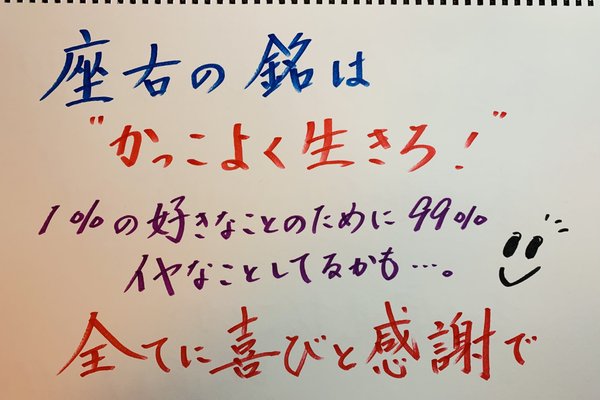 座右の銘は
"かっこよく生きろ！"
1%の好きなことのために99%
イヤなことしてるかも…。
全てに喜びと感謝で